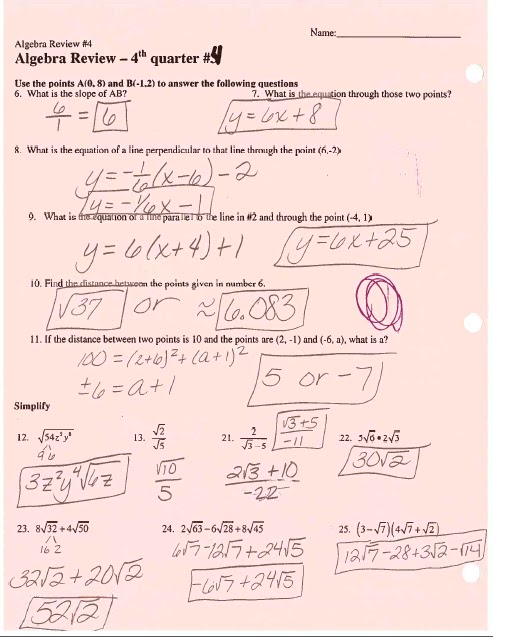 Name:
Algebra Review #4
Algebra Review – 4th quarter #4
Use the points A(0, 8) and B(-1,2) to answer the following questions
6. What is the slope of AB? 7. What is the equation through those two points?
6/1 = 6 y = 6x + 8
8. What is the equation of a line perpendicular to that line through the point (6,-2)
y = -1/6(x-6) - 2
y = -1/6x - 1
9. What is the equation of a line parallel to the line in #2 and through the point (-4, 1)
y = 6(x+4)+1 y=6x+25
10. Find the distance between the points given in number 6.
√37 or ≈ 6.083
11. If the distance between two points is 10 and the points are (2, -1) and (-6, a), what is a?
100 = (2+6)² + (a+1)²
±6 = a+1 5 or -7
Simplify
12. √54z⁵y⁸ 13. √2/√5 21. 2/√3-5 √3+5/-11 22. 5√6•2√3
9 6
3z²y⁴√6z √10/5 2√3+10/-22 30√2
23. 8√32+4√50 24. 2√63-6√28+8√45 25. (3-√7)(4√7+√2)
16 2
6√7-12√7+24√5 12√7-28+3√2-√14
32√2+20√2 -6√7+24√5
52√2